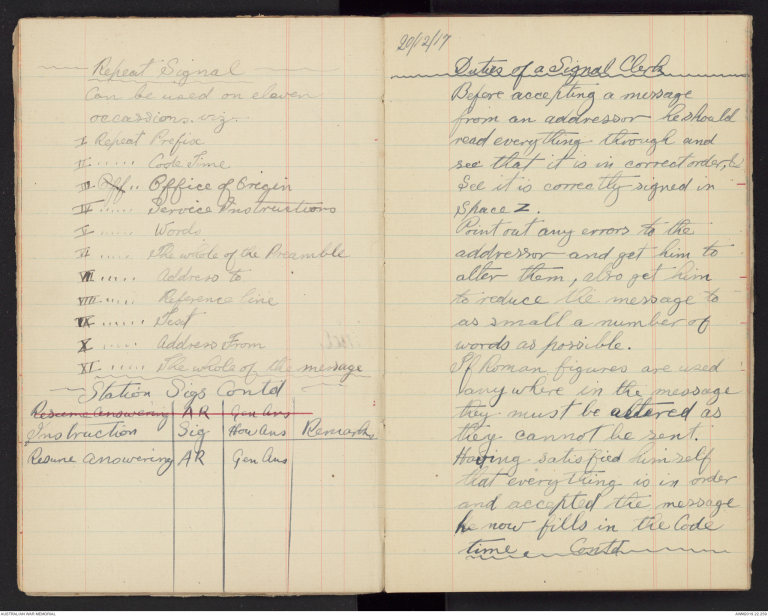 Repeat Signal
Can be used on eleven
occassions. viz.
I Repeat Prefix
II " " " Code Time
III Off " Office of Origin
IV " " " Service Instructions
V " " " Words
VI " " " The whole of the Preamble
VII " " " Address to
VIII " " " Reference line
IX " " " Text
X " " " Address From
XI " " " The whole of the message
Station Sigs Contd
Resume answering AR Gen Ans
Instruction Sig How Ans Remarks
Resume answering AR Gen Ans
20/12/17
Duties of a Signal Clerk
Before accepting a message
from an addressor he should
read everything through and
see that it is in correct order, &
See it is correctly signed in
Space Z.
Point out any errors to the
addressor and get him to
alter them, also get him
to reduce the message to
as small a number of
words as possible.
If Roman figures are used
anywhere in the message
they must be altered as
they cannot be sent.
Having satisfied himself
that everything is in order
and accepted the message
he now fills in the Code
time Contd
AUSTRALIAN WAR MEMORIAL